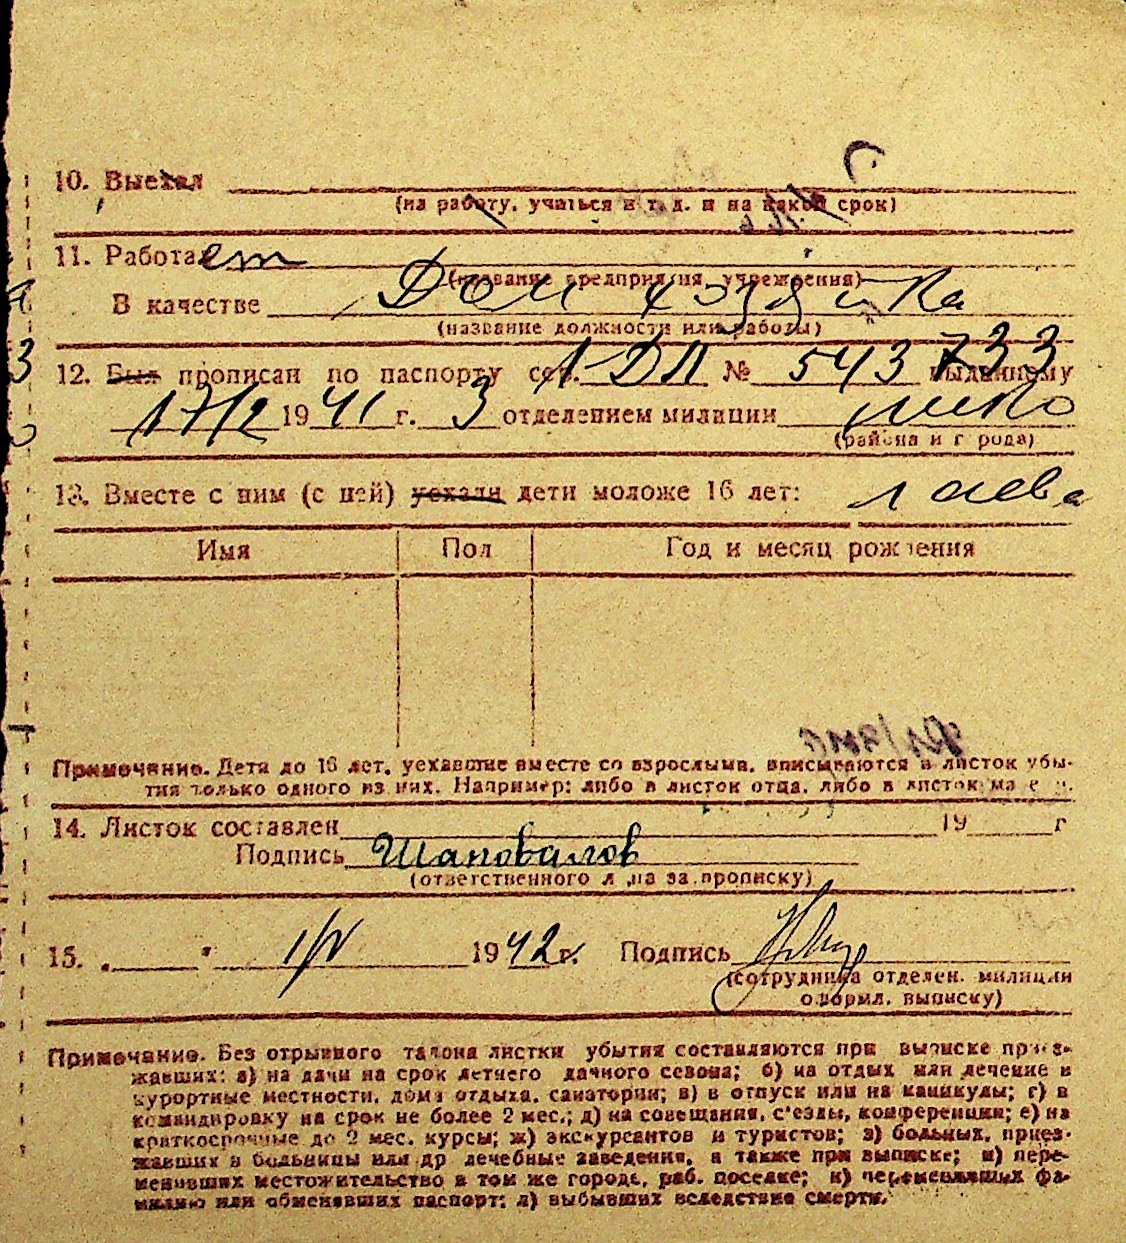 10. Выехал
(на работу, учиться и т. д. и на какой срок)
11. Работает
(название предприятия, учреждения)
В качестве Дом хозяйка
(название должности или работы)
12. Был прописан по паспорту сер. 1-ДП № 543733 выданному
17/2 1941 г. 3 отделением милиции нико
(района и города)
13. Вместе с ним (с ней) уехали дети моложе 16 лет: лаева
Имя Пол Год и месяц рождения
Примечание. Дети до 16 лет, уехавшие вместе со взрослыми, вписываются в листок убы-
тия только одного из них. Например: либо в листок отца, либо в листок матери.
14. Листок составлен 19 г
Подпись Шаповалов
(ответственного лица за прописку)
15. „ " 1/V 1942 г. Подпись
(сотрудника отделен. милиции
оформл. выписку)
Примечание. Без отрывного талона листки убытия составляются при выписке приез-
жавших: а) на дачи на срок летнего дачного сезона; б) на отдых или лечение в
курортные местности, дома отдыха, санатории; в) в отпуск или на каникулы; г) в
командировку на срок не более 2 мес.; д) на совещания, с'езды, конференции; е) на
краткосрочные до 2 мес. курсы; ж) экскурсантов и туристов; з) больных, приез-
жавших в больницы или др лечебные заведения, а также при выписке; и) пере-
менивших местожительство в том же городе, раб. поселке; к) переменивших фа-
милию или обменявших паспорт; л) выбывших вследствие смерти.